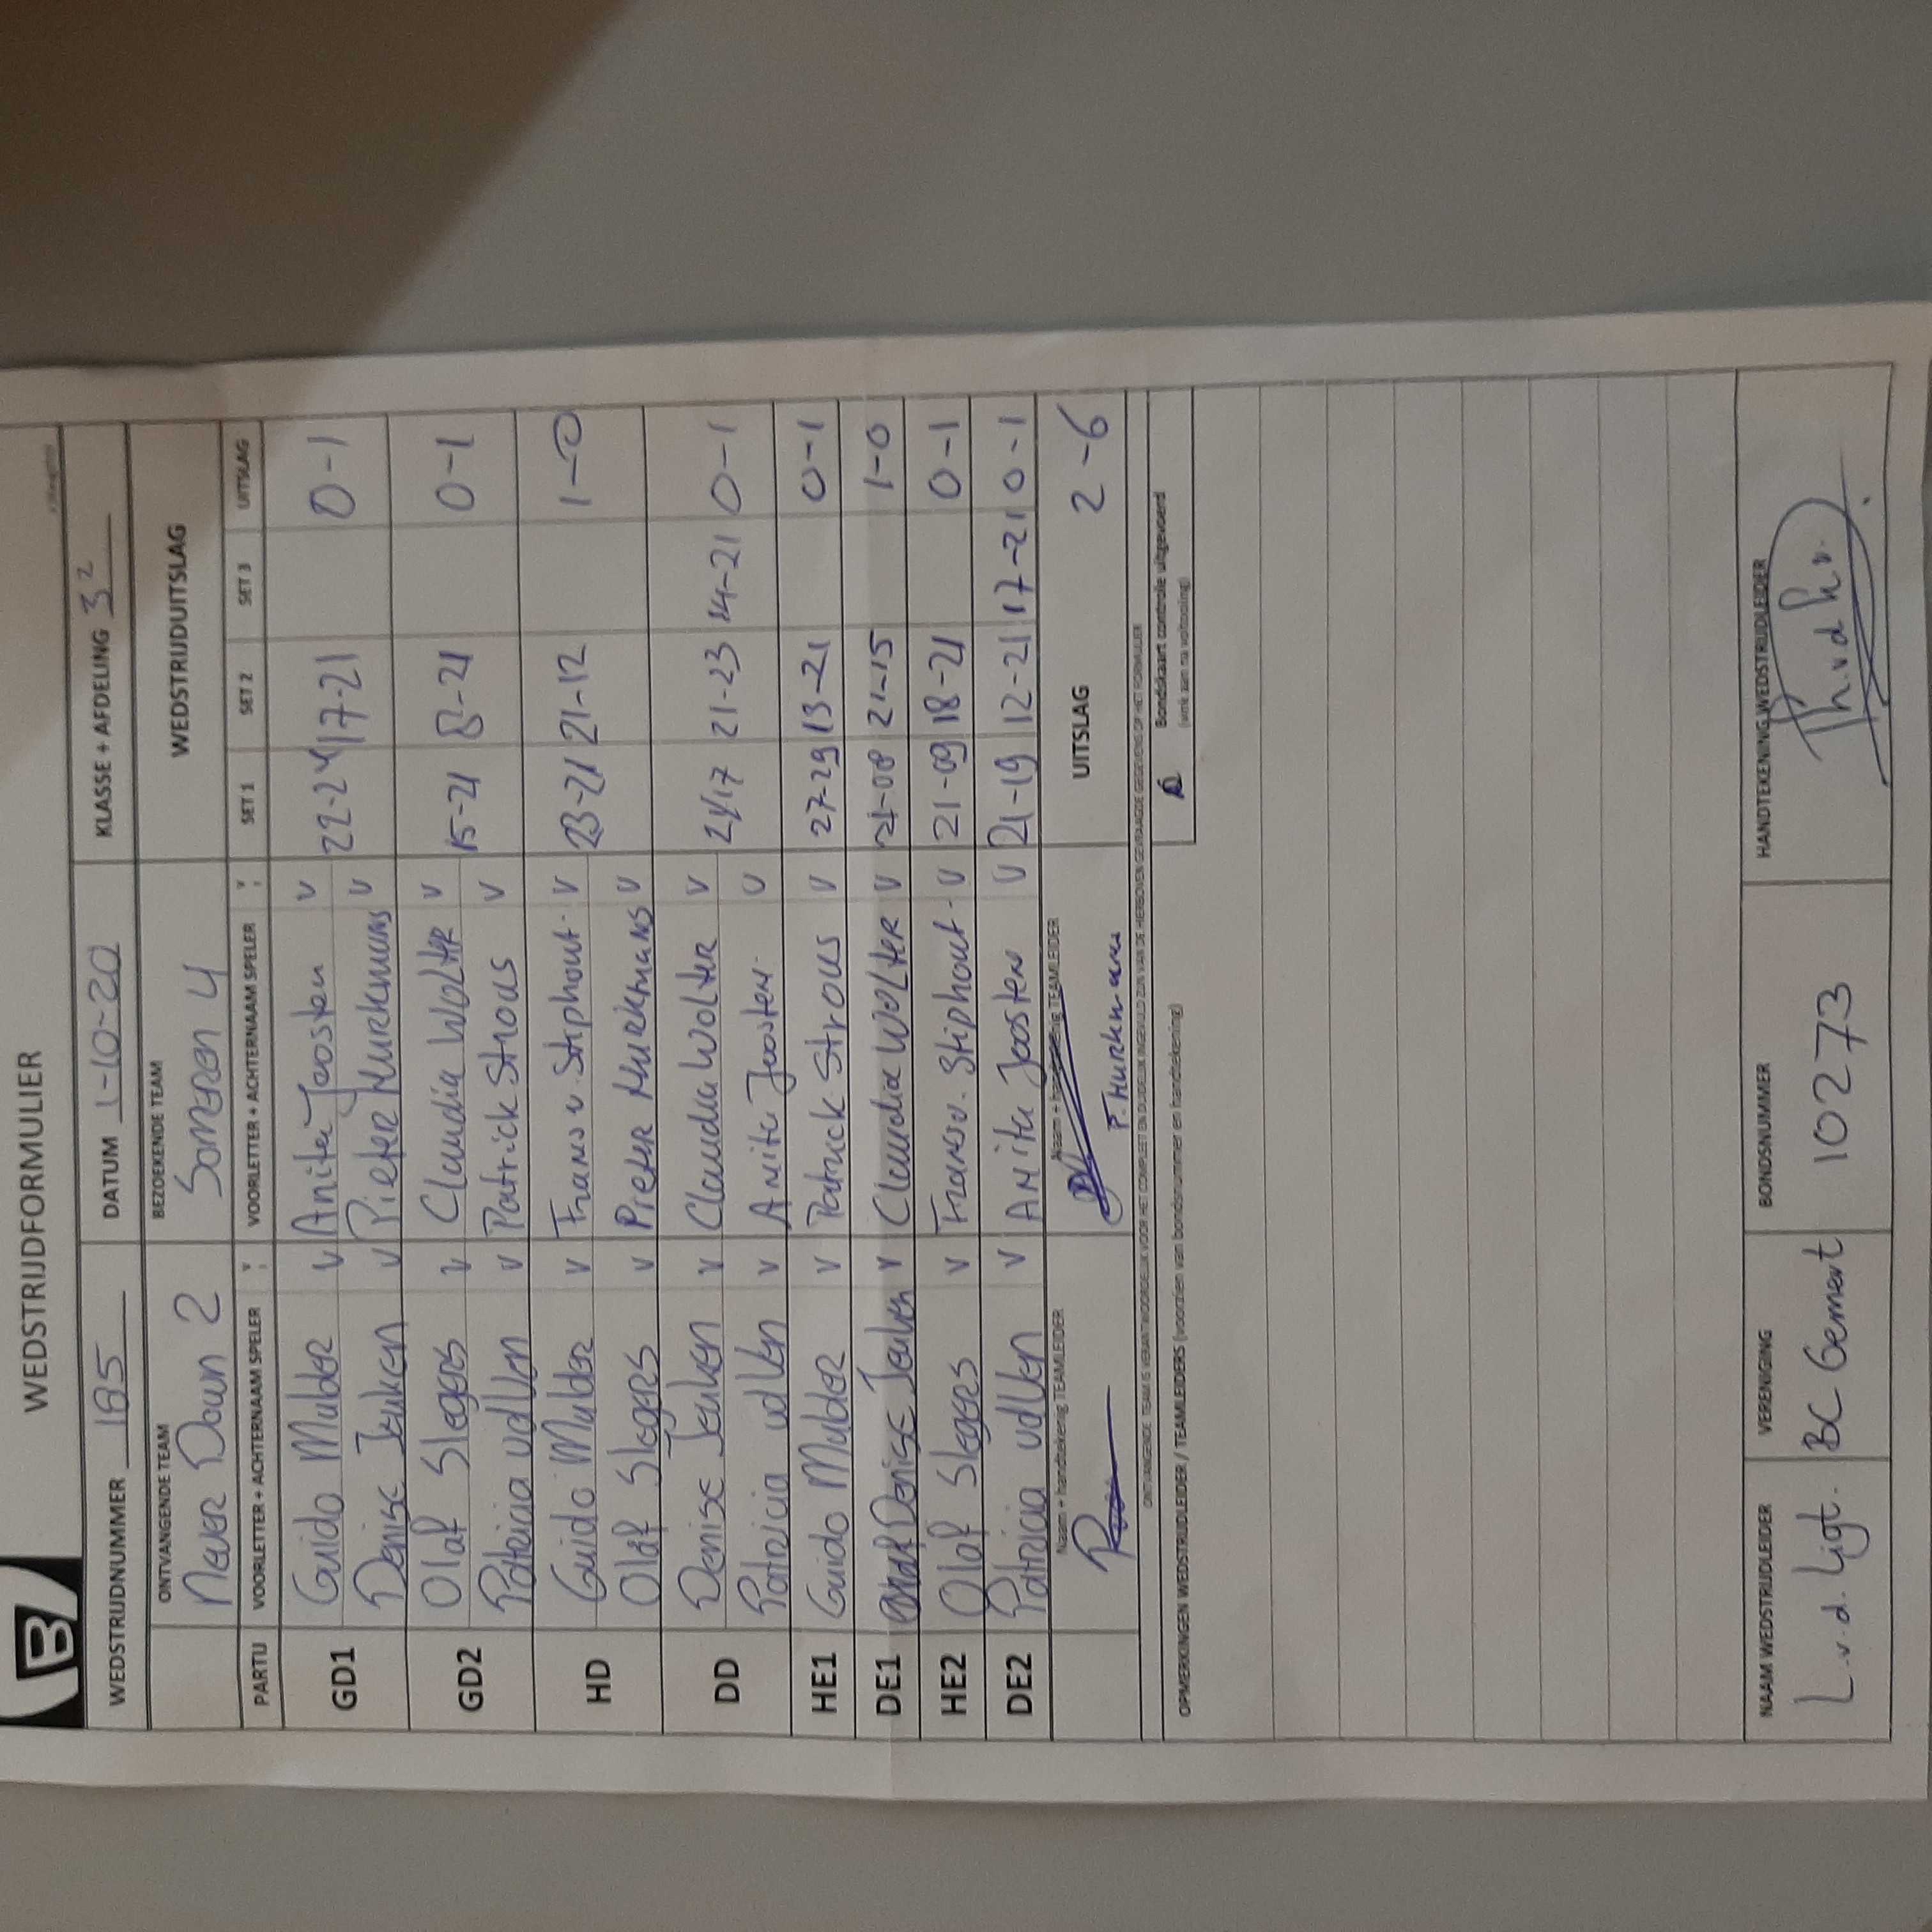 B
WEDSTRIJDFORMULIER
WEDSTRIJDNUMMER 185 DATUM 1-10-20 KLASSE + AFDELING 3²
ONTVANGENDE TEAM BEZOEKENDE TEAM WEDSTRIJDUITSLAG
Never Down 2 Someren 4
PARTIJ VOORLETTER + ACHTERNAAM SPELER VOORLETTER + ACHTERNAAM SPELER SET 1 SET 2 SET 3 UITSLAG
GD1 Guido Mulder v Anita Joosten v 22-24 17-21 0-1
Denise Jeuken v Pieter Hurkmans v
GD2 Olaf Slegers v Claudia Wolter v 15-21 18-21 0-1
Patricia vdVen v Patrick Strous v
HD Guido Mulder v Frans v. Stiphout. v 23-21 21-12 1-0
Olaf Slegers v Pieter Hurkmans v
DD Denise Jeuken v Claudia Wolter v 21-17 21-23 14-21 0-1
Patricia vdVen v Anita Joosten. v
HE1 Guido Mulder v Patrick Strous v 27-29 13-21 0-1
DE1 Denise Jeuken v Claudia Wolter v 21-08 21-15 1-0
HE2 Olaf Slegers v Frans v. Stiphout. v 21-09 18-21 0-1
DE2 Patricia vdVen v Anita Joosten v 21-19 12-21 17-21 0-1
Naam + handtekenig TEAMLEIDER Naam + handtekenig TEAMLEIDER UITSLAG 2-6
P. Hurkmans
ONTVANGENDE TEAM IS VERANTWOORDELIJK VOOR HET COMPLEET EN DUIDELIJK INGEVULD ZIJN VAN DE HIERBOVEN GEVRAAGDE GEGEVENS OP HET FORMULIER
OPMERKINGEN WEDSTRIJDLEIDER / TEAMLEIDERS (voorzien van bondsnummer en handtekening) Bondskaart controle uitgevoerd
(vink aan na voltooiing)
NAAM WEDSTRIJDLEIDER VERENIGING BONDSNUMMER HANDTEKENING WEDSTRIJDLEIDER
L.v.d. Ligt. BC Gemert 10273